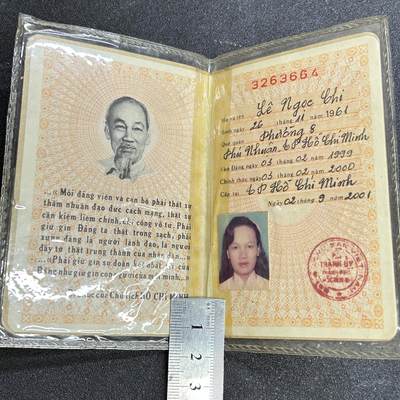 ... Mỗi đảng viên và cán bộ phải thật sự
thấm nhuần đạo đức cách mạng, thật sự
cần kiệm liêm chính, chí công vô tư. Phải
giữ gìn Đảng ta thật trong sạch, phải
xứng đáng là người lãnh đạo, là người
đầy tớ thật trung thành của nhân dân...
...Phải giữ gìn sự đoàn kết nhất trí của
Đảng như giữ gìn con ngươi của mắt mình...
Chủ tịch HỒ CHÍ MINH
3263664
Họ và tên Lê Ngọc Chi
Sinh ngày 26 tháng 11 năm 1961
Quê quán Phường 8
Phú Nhuận, TP Hồ Chí Minh
Vào Đảng ngày 03 tháng 02 năm 1999
Chính thức ngày 03 tháng 02 năm 2000
Cấp tại TP Hồ Chí Minh
Ngày 02 tháng 9 năm 2001
THÀNH ỦY
1
2
3